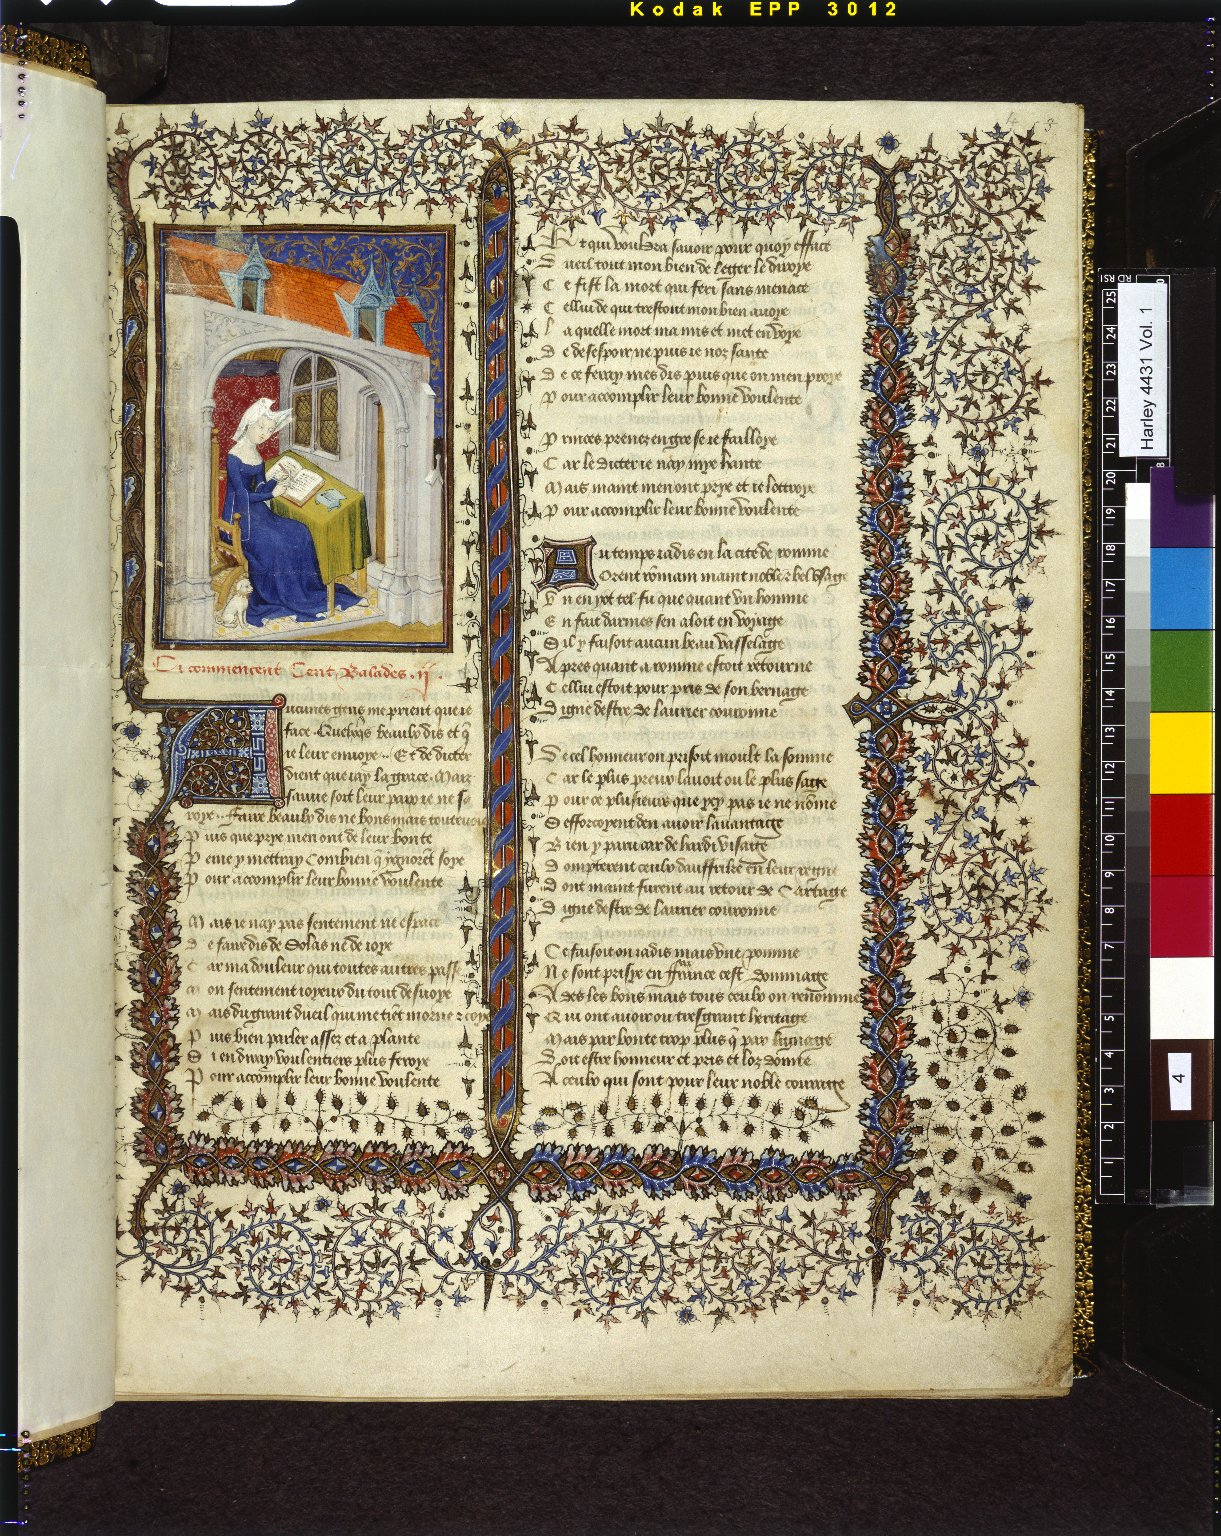 Kodak EPP 3012
4 3
Ci commencent Cent Balades .ii.
Aucunes gens me prient que ie
face · Quelqs beaulx dis et q̄
ie leur enuoye · Et de dicter
dient que iay la grace · Mais
sauue soit leur paix ie ne sa
roye · faire beaulx dis ne bons mais
Puis que prye men ont de leur bonte
Peine y mettray Combien q̄ ygnorēt soye
Pour accomplir leur bonne voulente
Mais ie nay pas sentement ne espace
De faire dis de Solas ne de ioye
Car ma douleur qui toutes autres passe
Mon sentement ioyeux du tout desuoye
Mais du grant dueil qui me tiēt morne z coye
Puis bien parler assez et a plante
Si en diray voulentiers plus feroye
Pour accōplir leur bonne voulente
Et qui vouldra sauoir pour quoy efface
Dueil tout mon bien de legier le diroye
Ce fist la mort qui feri sans menace
Cellui de qui trestout mon bien auoye
Laquelle mort ma mis et met en voye
De desespoir ne puis ie noz sante
De ce feray mes dis puis que on men proye
Pour accomplir leur bonne voulente
Princes prenez en gre se ie failloye
Car le dicter ie nay mye hante
Mais maint men ont prye et ie lottroye
Pour accomplir leur bonne voulente
Au temps iadis en la cite de romme
Orent rōmain maint noble z bel vsage
Vn en yot tel fu que quant vn homme
En fait darmes sen aloit en voyage
Sil y faisoit aucun beau vasselage
Apres quant a romme estoit retourne
Cellui estoit pour pris de son bernage
Digne destre de laurier couronne
De cel honneur on prisoit moult la somme
Car le plus preux lauoit ou le plus sage
Pour ce plusieurs que ycy pas ie ne nōme
Sefforcoyent den auoir lauantage
Bien y paru car de hardi visage
Dompterent ceulx dauffrike en leur regne
Dont maint furent au retour de Cartage
Digne destre de laurier couronne
Ce faisoit on iadis mais vne pomme
Ne sont prisye en france cest dommage
Ades les bons mais tous ceulx on renomme
Qui ont auoir ou tresgrant heritage
Mais par bonte trop plus q̄ par lignage
Doit estre honneur et pris et loz donne
A ceulx qui sont pour leur noble courage
Harley 4431 Vol. 1
4
25
24
23
22
21
20
19
18
17
16
15
14
13
12
11
10
9
8
7
6
5
4
3
2
1